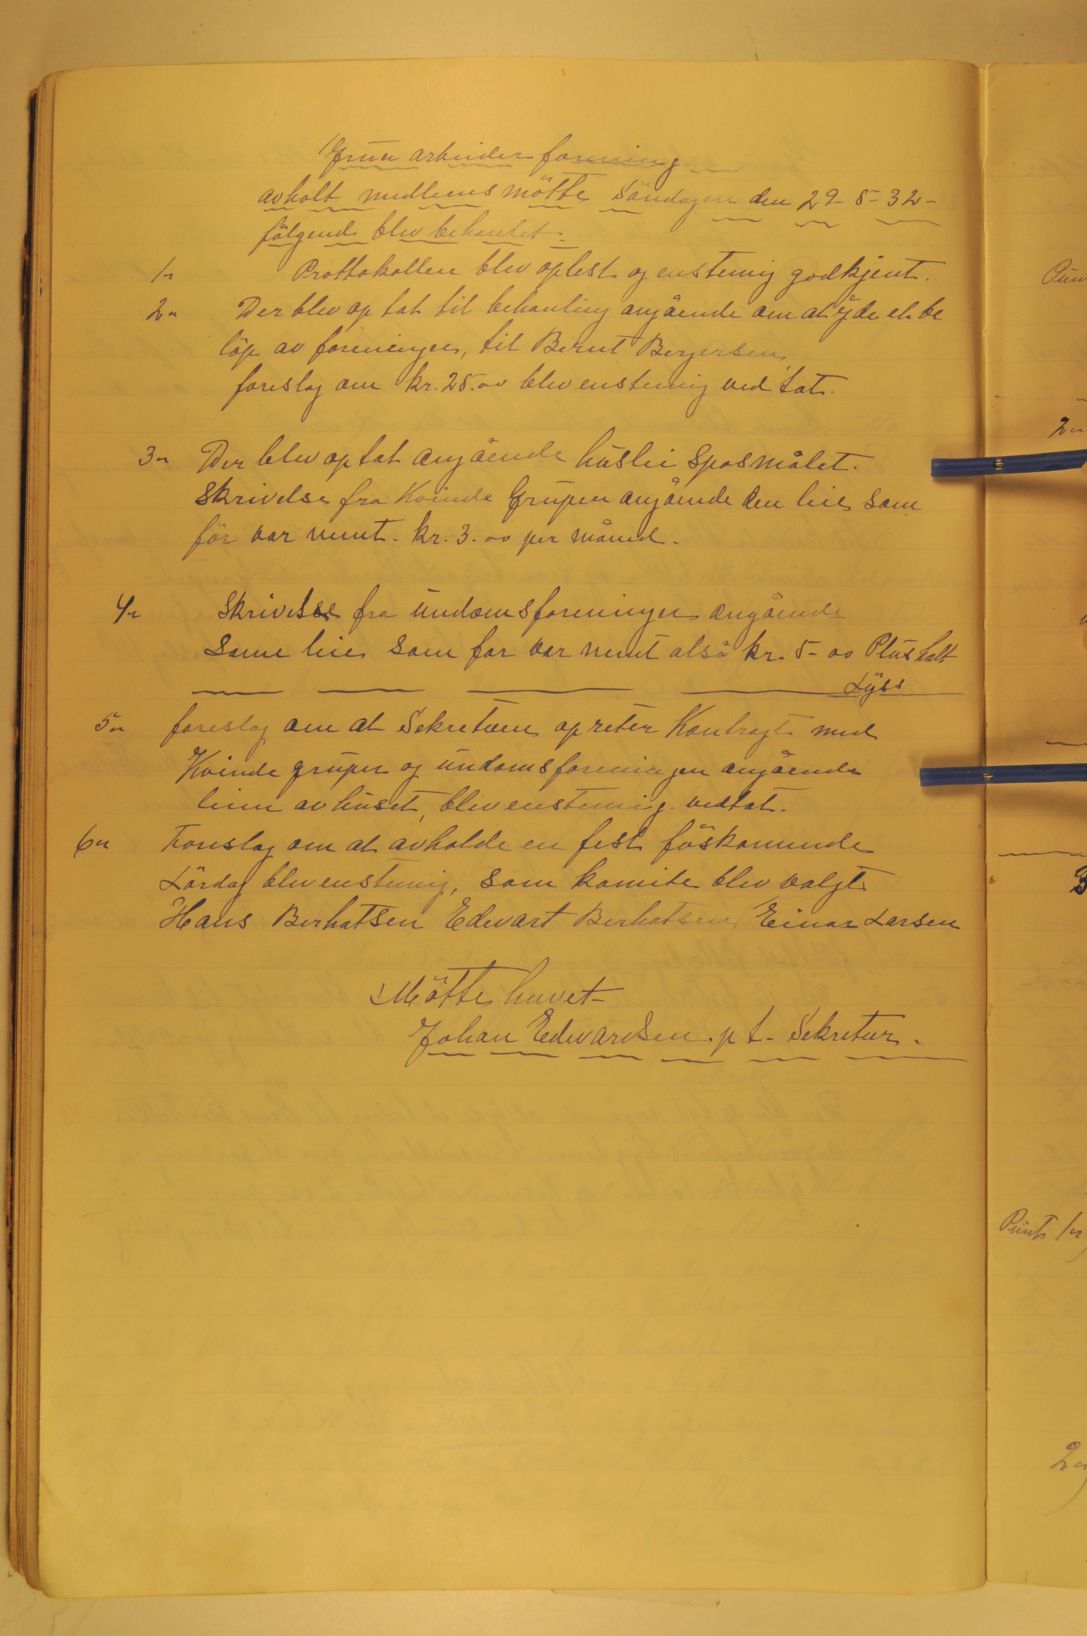 Grua arbeider forening.
avholt medlems møtte Søndagen den 29-5-32-
følgende blev behanlet:
1- Prottokollen blev oplest og enstemig godkjent.
2- Der blev op tat til behanling angående om at yde et be
løp av foreningen, til Bernt Bergersen,
foreslag om kr. 25.00 blev enstemig ved tat.
3- Der blev op tat angående huslei Sposmålet.
Skrivelse fra Kvinde Grupen angående den leie som
før var nemt. kr. 3.00 per måned.
4- Skrivelse fra undomsforeningen angående
same leie som før var nemt alså kr. 5-00 Plus halt
Lyss
5- foreslag om at Sekretæren opreter Kontragt med
Kvinde grupen og undomsforeningen angående
leien av huset, blev enstemig vedtat.
6- Foreslag om at avholde en fest føskomende
Lørdag blev enstemig, som komite blev valgt
Hans Berhatsen Edevart Berhatsen, Einar Larsen
Møtte hevet-
Johan Edevardsen. p t- Sekretær.
2-
Punts 1-
2-